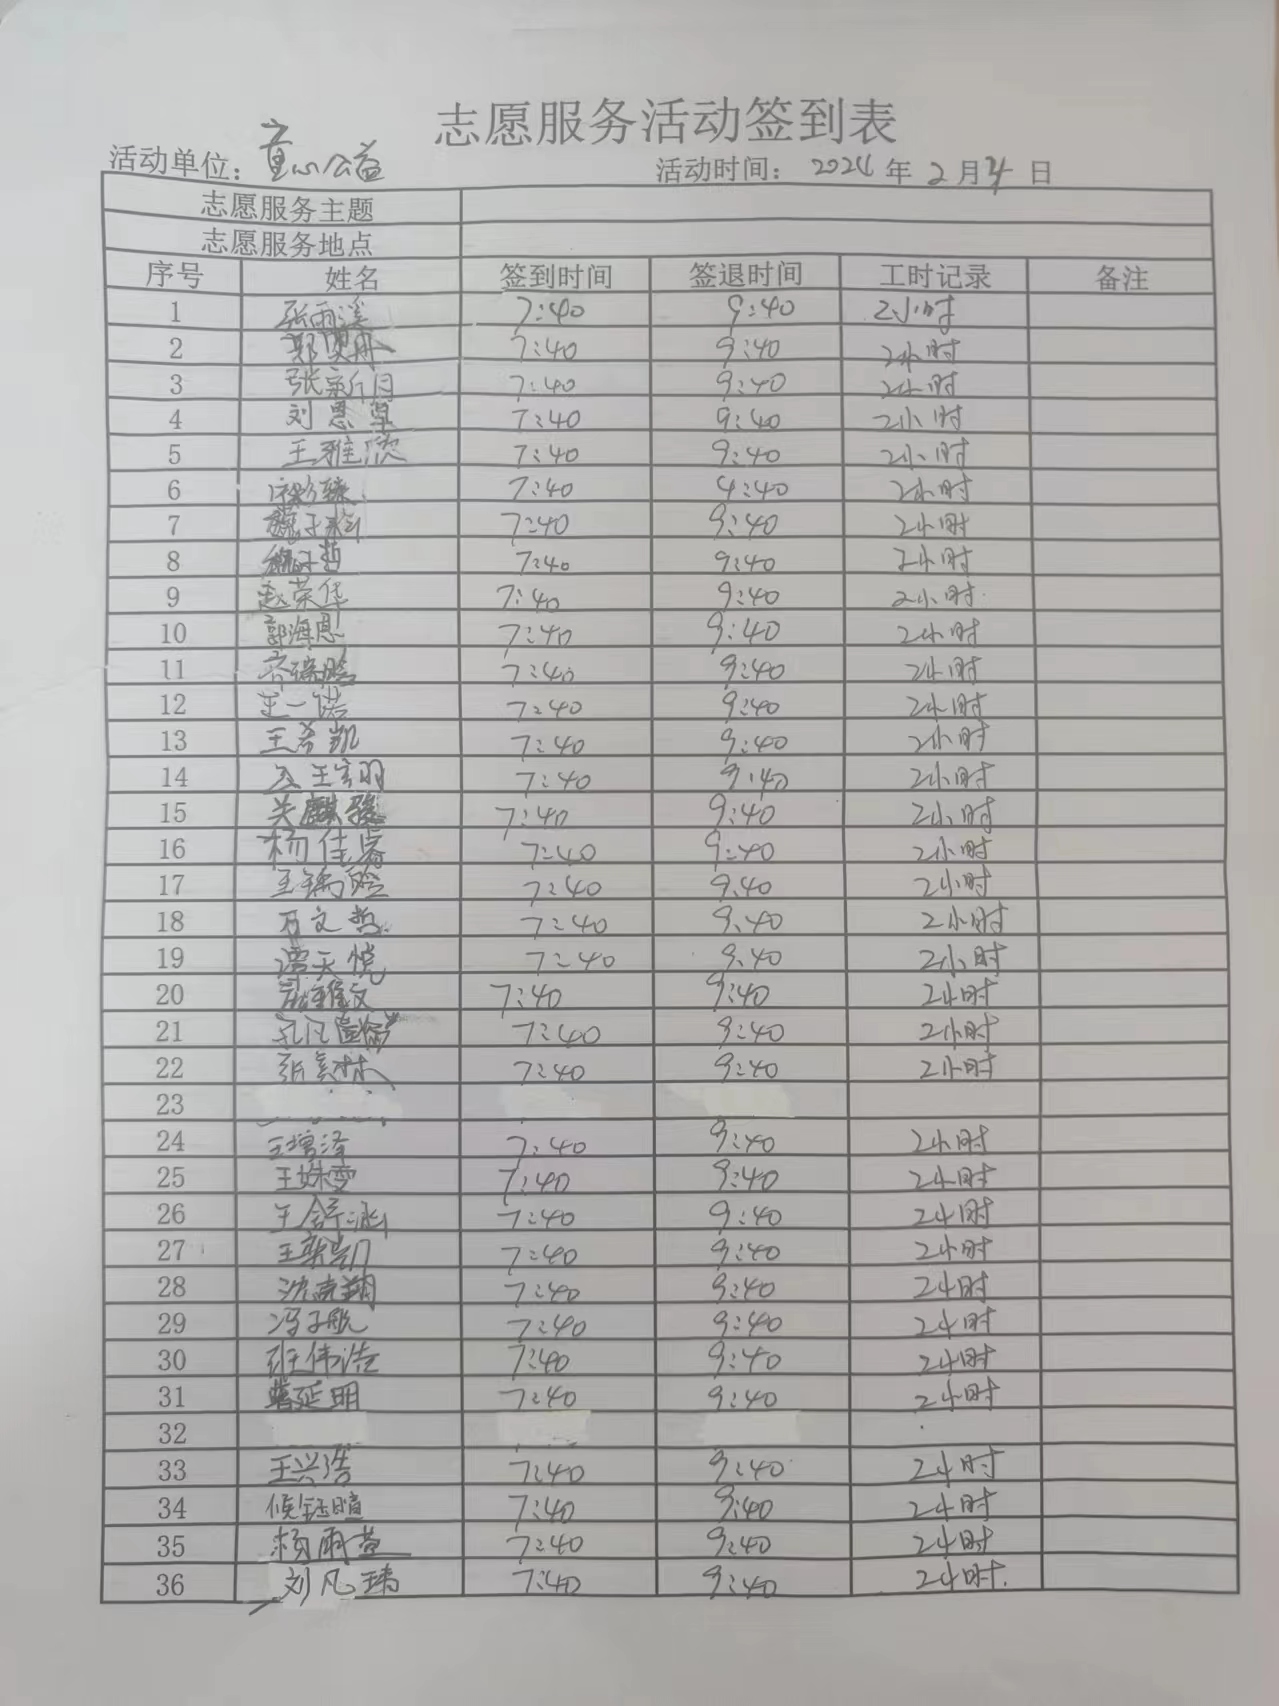 志愿服务活动签到表
活动单位：童心公益 活动时间： 2024 年 2 月 4 日
志愿服务主题
志愿服务地点
序号 姓名 签到时间 签退时间 工时记录 备注
1 张雨溪 7:40 9:40 2小时
2 郑 7:40 9:40 2小时
3 张新月 7:40 9:40 2小时
4 刘恩 7:40 9:40 2小时
5 王雅 7:40 9:40 2小时
6 7:40 9:40 2小时
7 魏子 7:40 9:40 2小时
8 7:40 9:40 2小时
9 赵荣华 7:40 9:40 2小时
10 郭海恩 7:40 9:40 2小时
11 7:40 9:40 2小时
12 王一诺 7:40 9:40 2小时
13 王希凯 7:40 9:40 2小时
14 7:40 9:40 2小时
15 关麒骏 7:40 9:40 2小时
16 杨佳睿 7:40 9:40 2小时
17 7:40 9:40 2小时
18 万文哲 7:40 9:40 2小时
19 谭天悦 7:40 9:40 2小时
20 雅文 7:40 9:40 2小时
21 7:40 9:40 2小时
22 张 林 7:40 9:40 2小时
23
24 王增泽 7:40 9:40 2小时
25 王姝雯 7:40 9:40 2小时
26 王舒涵 7:40 9:40 2小时
27 王 7:40 9:40 2小时
28 沈 翔 7:40 9:40 2小时
29 冯子航 7:40 9:40 2小时
30 张伟浩 7:40 9:40 2小时
31 延明 7:40 9:40 2小时
32
33 王兴浩 7:40 9:40 2小时
34 候钰暄 7:40 9:40 2小时
35 杨雨萱 7:40 9:40 2小时
36 刘凡 7:40 9:40 2小时